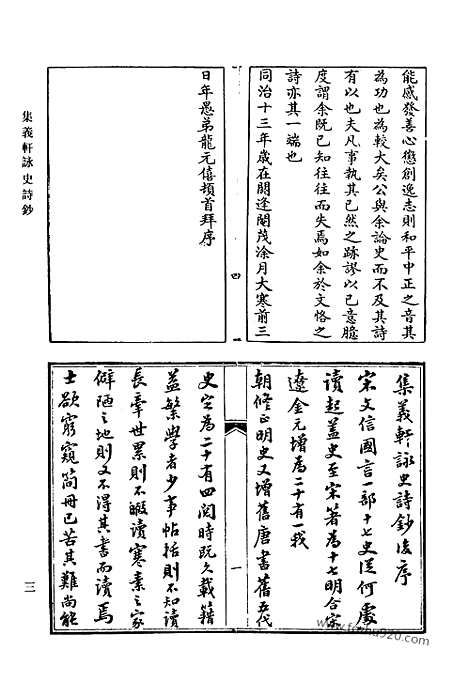 能感發善心懲創逸志則和平中正之音其
為功也為較大矣公與余論史而不及其詩
有以也夫凡事執其已然之跡謬以己意臆
度謂余既已知往往而失焉如余於文恪之
詩亦其一端也
同治十三年歲在閼逢閹茂涂月大寒前三
四
日年愚弟龍元僖頓首拜序
集義軒詠史詩鈔
集義軒詠史詩鈔後序
宋文信國言一部十七史從何處
讀起蓋史至宋著為十七明合宋
遼金元增為二十有一我
朝修正明史又增舊唐書舊五代
一
史定為二十有四閱時既久載籍
益繁學者少事帖括則不知讀
長牽世累則不暇讀寒素之家
僻陋之地則又不得其書而讀焉
士欲窮窺簡冊已苦其難尚能
三